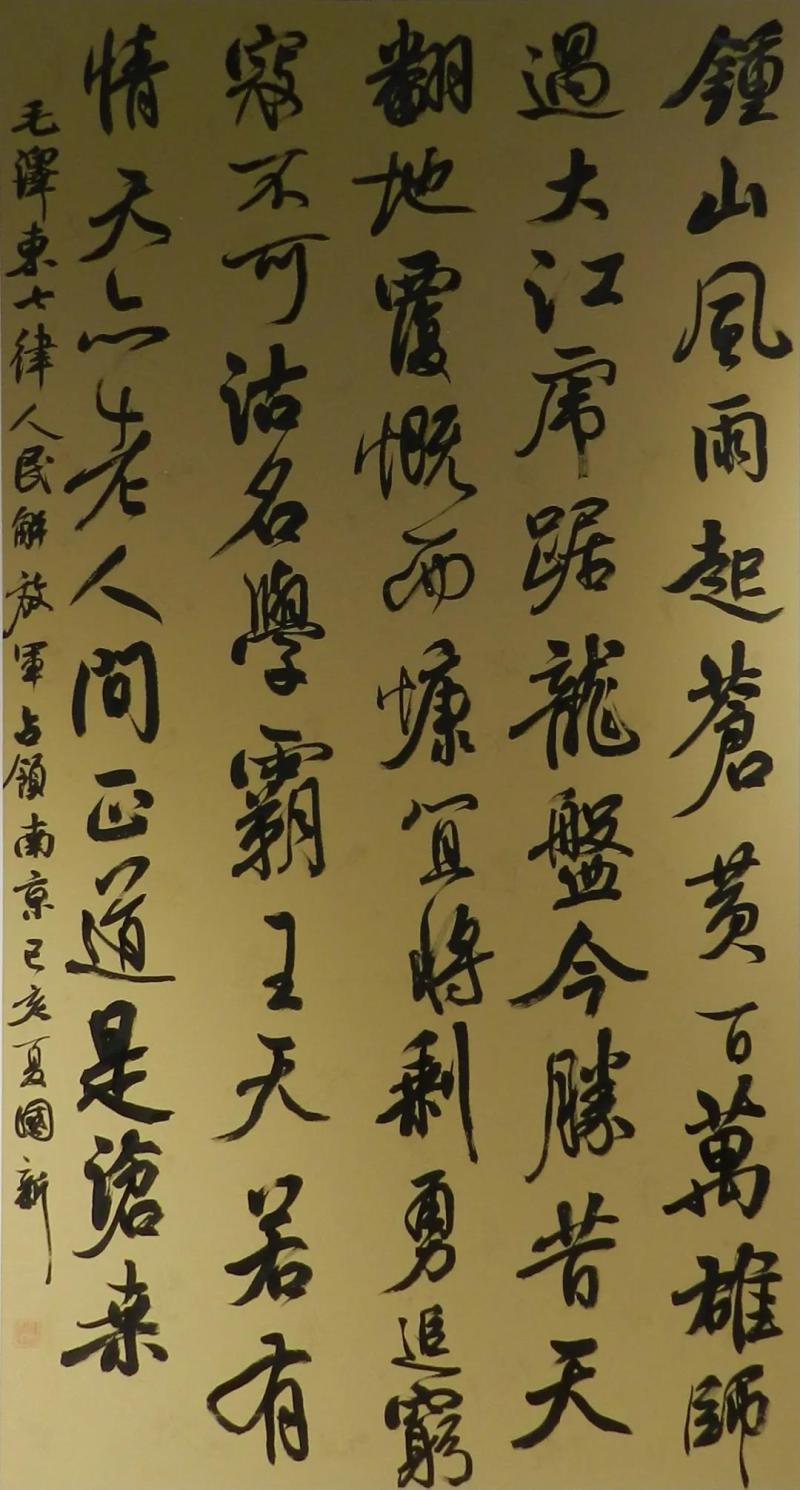 鍾山風雨起蒼黄百萬雄師
過大江虎踞龍盤今勝昔天
翻地覆慨而慷宜将剩勇追窮
寇不可沽名學霸王天若有
情天亦老人間正道是滄桑
毛澤東七律人民解放軍占領南京己亥夏國新